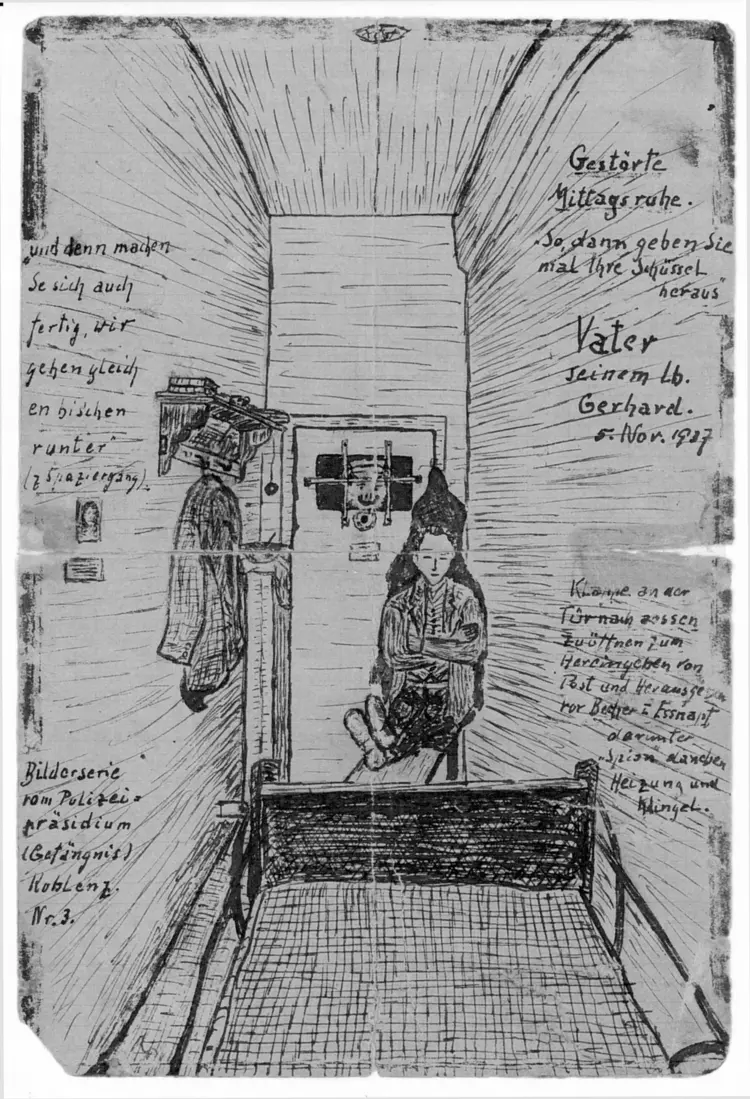 Gestörte
Mittagsruhe.
„So, dann geben Sie
mal Ihre Schüssel
heraus"
Vater
seinem lb.
Gerhard.
5. Nov. 1937
„und denn machen
Se sich auch
fertig, wir
gehen gleich
en bischen
runter"
(z Spaziergang).
Klappe an der
Tür nach aussen
zu öffnen zum
Hereingeben von
Post und Herausgeben
von Becher u Essnapf
darunter
„Spion" daneben
Heizung und
Klingel.
Bilderserie
vom Polizei=
präsidium
(Gefängnis)
Koblenz.
Nr. 3.